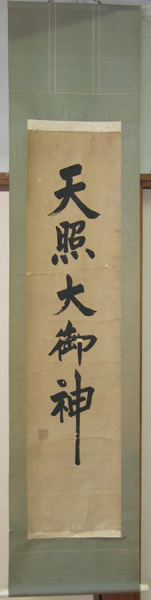 天照大御神